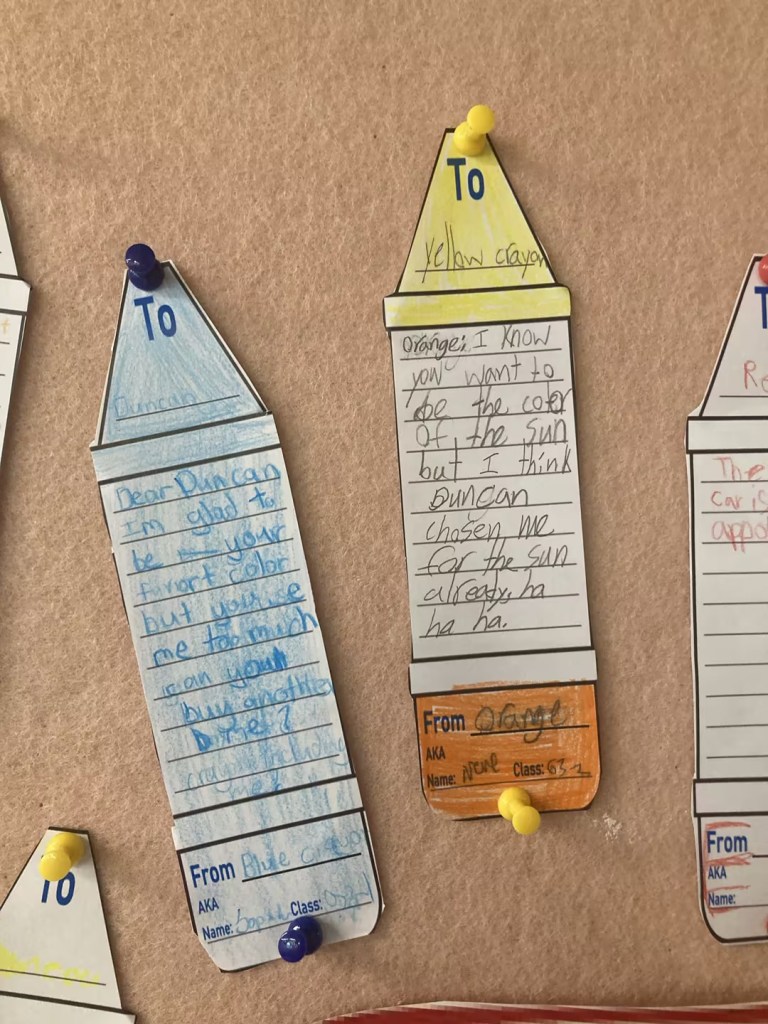 To
Duncan
Dear Duncan
Im glad to
be your
favort color
but you use
me too much
can you
buy another
me?
crayons including
me?
From Blue
AKA
Name: Class:
To
yellow crayon
orange: I know
you want to
be the color
of the sun
but I think
Duncan
chosen me
for the sun
already, ha
ha ha.
From orange
AKA
Name: Class:
To
Re
The
car
appo
From
AKA
Name: